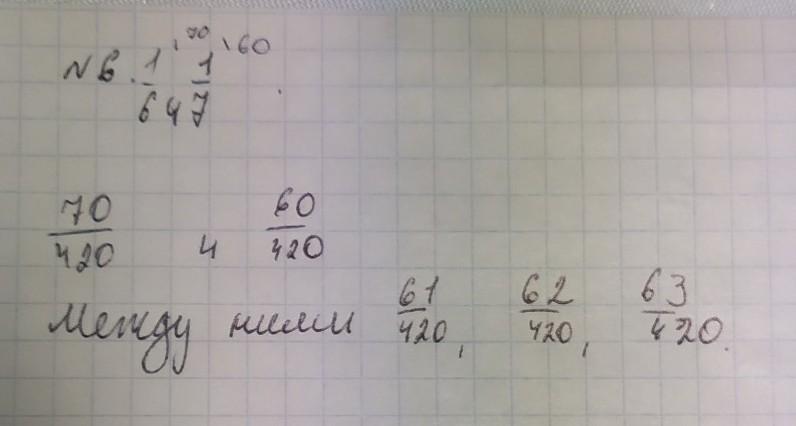 N 6. 1/6 ˋ70 и 1/7 ˋ60
70/420 и 60/420
Между ними 61/420, 62/420, 63/420.